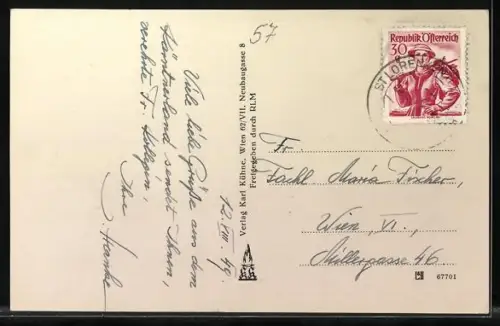 57
12. VIII. 49.
Viele liebe Grüße aus dem
Kärntnerland sendet Ihnen,
verehrte Fr. Kollegin,
Ihre
J. Hanke
Verlag Karl Kühne, Wien 62/VII, Neubaugasse 8
Freigegeben durch RLM
Republik Österreich
30
ST LOREN
Fr
Fachl Maria Fischer,
Wien, VI.,
Millergasse 46
67701